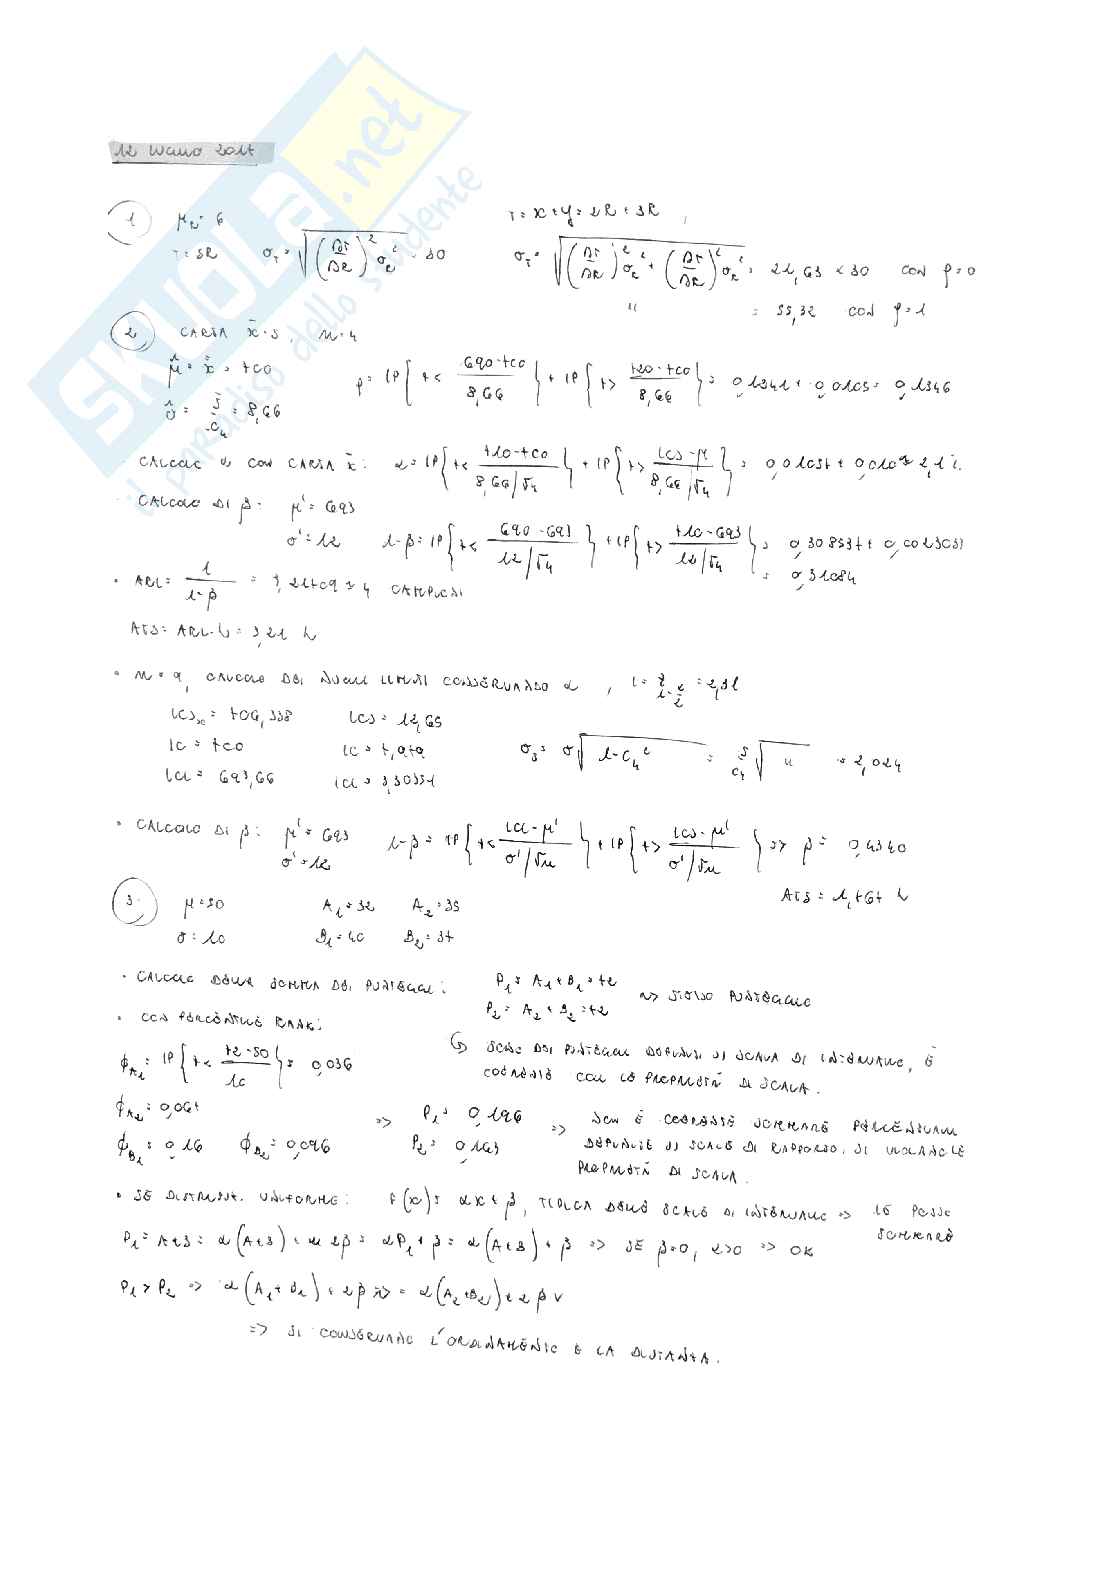 SKUOLA.net
il paradiso dello studente
12 LUGLIO 2017
1
μ_R = 6
T = 5R σ_T = √((ΔT/ΔR)² σ_R²) = 30
T = X + Y = 2R + 3R
σ_T = √((ΔT/ΔR)² σ_R² + (ΔT/ΔR)² σ_R²) = 21,63 < 30 CON ρ=0
" = 55,32 CON ρ=1
2 CARTA x̄-S, n=4
μ̂ = x̿ = 700
σ̂ = S̄/C₄ = 8,66
p = IP{z < (690-700)/8,66} + IP{z > (720-700)/8,66} = 0,1241 + 0,0105 = 0,1346
CALCOLO α CON CARTA x̄: α = IP{z < (710-700)/(8,66/√4)} + IP{z > (LCS-μ)/(8,66/√4)} = 0,01057 + 0,010 ≈ 2,1%
· CALCOLO DI β: μ' = 693
σ' = 12 1-β = IP{z < (690-693)/(12/√4)} + IP{z > (710-693)/(12/√4)} = 0,308537 + 0,0023031
= 0,31084
· ARL = 1/(1-β) = 3,21709 ≈ 4 CAMPIONI
ATS = ARL·h = 3,21 h
· n = 9, CALCOLO DEI NUOVI LIMITI CONSERVANDO α, L = z_(1-α/2) = 2,31
LCS_x̄ = 706,338 LCS = 12,65
LC = 700 LC = 7,979
LCI = 693,66 LCI = 3,30331
σ_S = σ√(1-C₄²) = S̄/C₄ √( " ) = 2,024
· CALCOLO DI β: μ' = 693
σ' = 12 1-β = IP{z < (LCI-μ')/(σ'/√n)} + IP{z > (LCS-μ')/(σ'/√n)} => β = 0,4340
ATS = 1,767 h
3. μ=50 A₁=32 A₂=35
σ=10 B₁=40 B₂=37
· CALCOLO DELLA SOMMA DEI PUNTEGGI: P₁ = A₁+B₁ = 72
P₂ = A₂+B₂ = 72 => STESSO PUNTEGGIO
· CON PERCENTILE RANK:
↳ SONO DEI PUNTEGGI DEFINITI SU SCALA DI INTERVALLO, È
COERENTE CON LE PROPRIETÀ DI SCALA.
φ_A₁ = IP{z < (32-50)/10} = 0,036
φ_A₂ = 0,067
φ_B₁ = 0,16 φ_B₂ = 0,096
=> P₁ = 0,196
P₂ = 0,163
=> NON È COERENTE SOMMARE PERCENTUALI
DEFINITE SU SCALE DI RAPPORTO. SI VIOLANO LE
PROPRIETÀ DI SCALA.
· SE DISTRIBUZ. UNIFORME: F(x) = αx+β, TIPICA DELLE SCALE DI INTERVALLO => LE POSSO
SOMMARE
P₁ = A+B = α(A+B) + 2β = αP₁+β = α(A+B)+β => SE β=0, α>0 => OK
P₁ > P₂ => α(A₁+B₁) + 2β > = α(A₂+B₂) + 2β ∨
=> SI CONSERVANO L'ORDINAMENTO E LA DISTANZA.